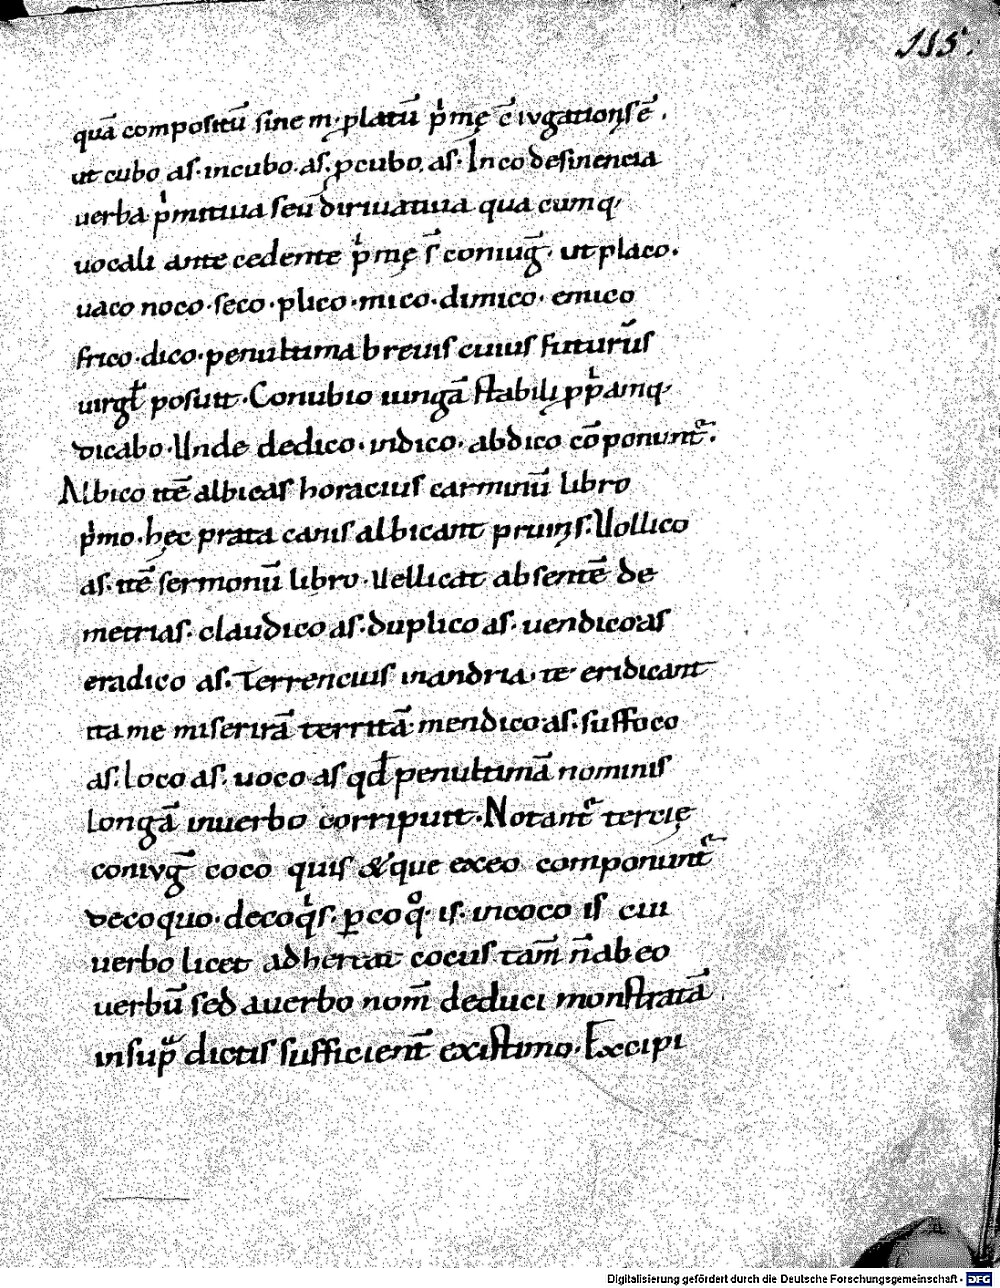 115.
quā compositū sine m. platū p'mę ē iugationis ē.
ut cubo as. incubo. as. pcubo. as. In co desinencia
uerba p'mitiua seu diriuatiua qua cumq;
uocali ante cedente p'mę s̄ coniuḡ. ut placo.
uaco noco. seco. plico. mico. dimico. emico
frico. dico. penultima breuis cuius futurūs
uirgł posuit. Conubio iungā stabili pp'amq;
dicabo. Unde dedico. indico. abdico cōponunt̄.
Albico itē albicas horacius carminū libro
p'mo. hęc prata canis albicant pruinis. Uollico
as. itē sermonū libro. Uellicat absentē de
metrias. claudico as. duplico as. uendico as
eradico as. Terrencius in andria. te eridicant
ita me miserirā territā. mendico as. suffoco
as. Loco as. uoco as qđ penultimā nominis
Longā in uerbo corripuit. Notant̄ tercię
coniuḡ coco quis & que exeo componunt̄
decoquo. decoq's. ꝑcoqͦ. is. incoco is cui
uerbo licet adhereat cocus tam̄ n̄ ab eo
uerbū sed a uerbo nom̄ deduci monstratā
insup̄ dictis sufficient̄ existimo. Excipi
Digitalisierung gefördert durch die Deutsche Forschungsgemeinschaft - DFG